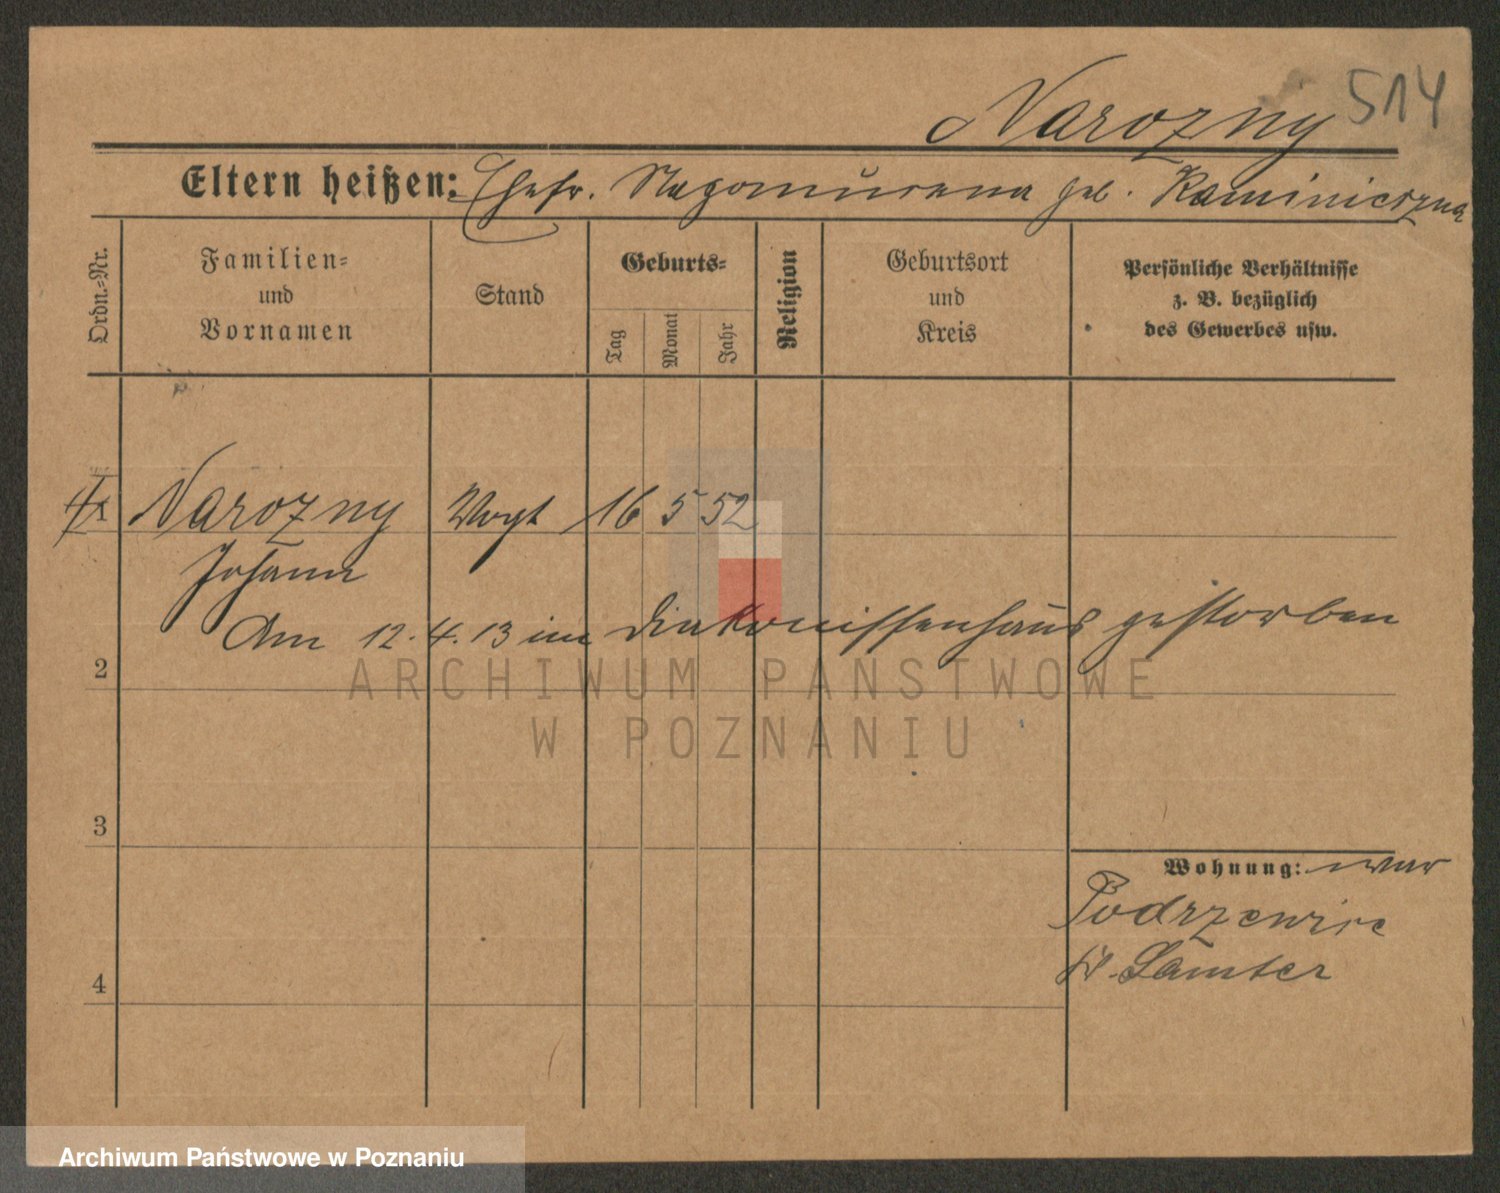 514
Narozny
Eltern heißen: Ehefr. Nepomucena geb. Kaminiczna
Ordn.-Nr.
Familien-
und
Vornamen
Stand
Geburts-
Tag
Monat
Jahr
Religion
Geburtsort
und
Kreis
Persönliche Verhältnisse
z. B. bezüglich
des Gewerbes usw.
1 Narozny Vogt 16 5 52
Johann
Am 12.4.13 im Diakonissenhaus gestorben
2
ARCHIWUM PAŃSTWOWE
W POZNANIU
3
Wohnung: war
Podrzewice
Kr. Samter
4
Archiwum Państwowe w Poznaniu